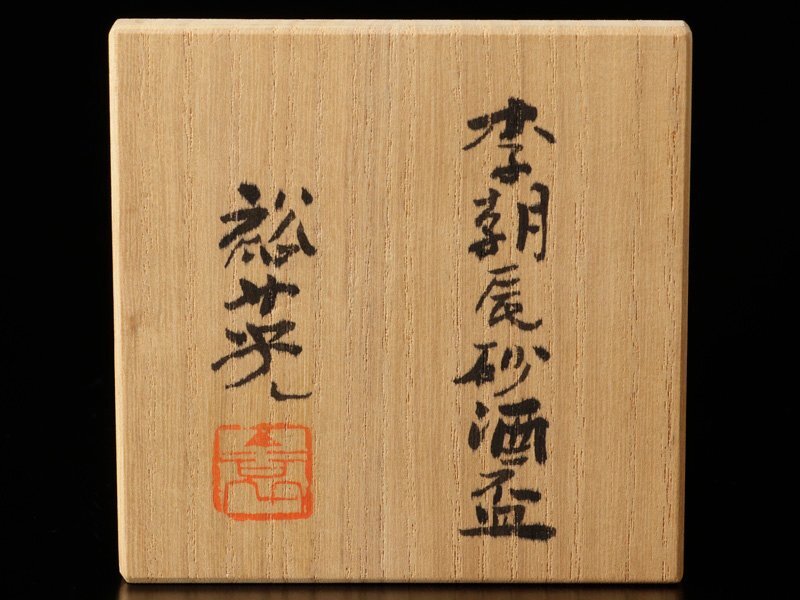 李朝辰砂酒盃
裕英